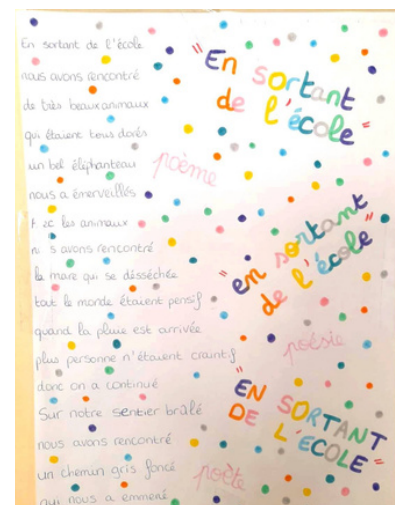 En sortant de l'école
nous avons rencontré
de très beaux animaux
qui étaient tous dorés
un bel éléphanteau
nous a émerveillés
les animaux
avons rencontré
la mare qui se désséchée
tout le monde étaient pensif
quand la pluie est arrivée
plus personne n'étaient craintif
donc on a continué
Sur notre sentier bralé
nous avons rencontré
un chemin gris foncé
qui nous a emmené
"En sortant
de l'école"
poème
"en sortant
de l'école"
poésie
"EN SORTANT
DE L'ÉCOLE"
poète